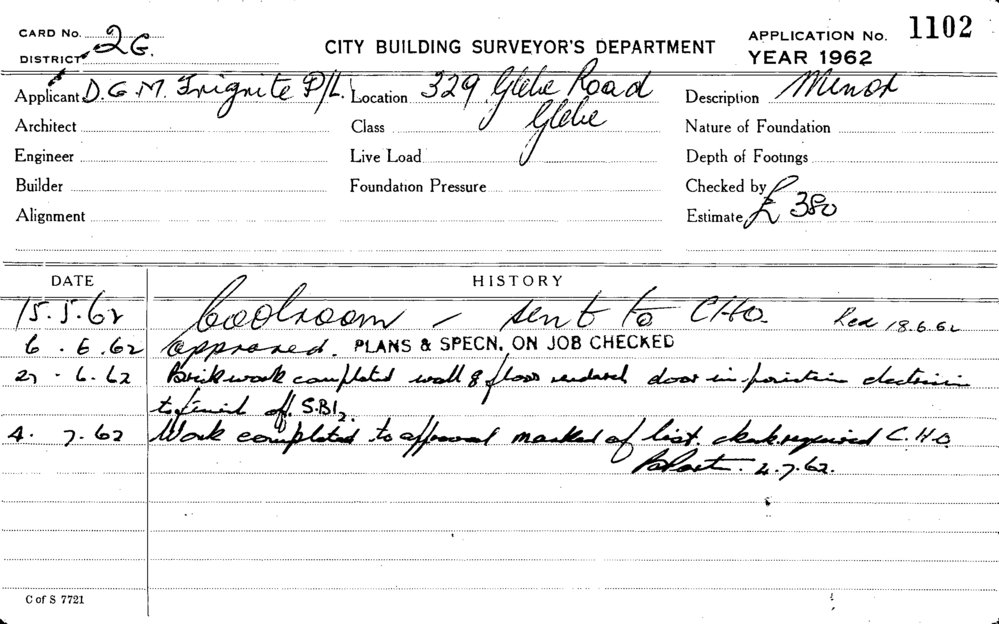 CARD No. 2G. CITY BUILDING SURVEYOR'S DEPARTMENT APPLICATION No. 1102
DISTRICT YEAR 1962
Applicant D.G.M. Trignite P/L. Location 329 Glebe Road Description Minor
Architect Class Glebe Nature of Foundation
Engineer Live Load Depth of Footings
Builder Foundation Pressure Checked by
Alignment Estimate £ 380
DATE HISTORY
15.5.62 Coolroom – sent to CHO. Red 18.6.62
6.6.62 approved. PLANS & SPECN. ON JOB CHECKED
27.6.62 Brickwork completed wall & floor rendered door in position electrician
to finish off. S.B.
4.7.62 Work completed to approval marked of list. C.H.O.
4.7.62.
C of S 7721